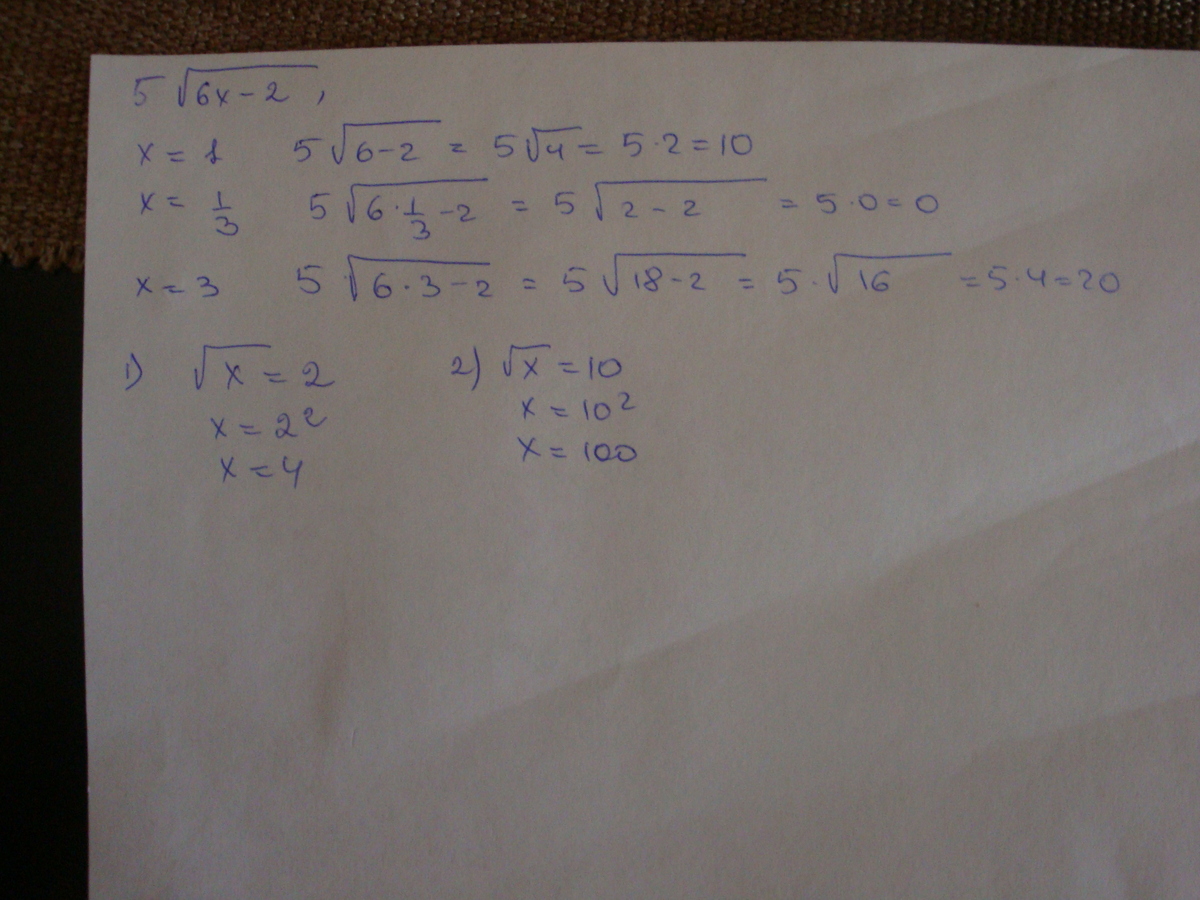 5 √(6x-2),
x = 1 5 √(6-2) = 5√4 = 5·2=10
x = 1/3 5 √(6·1/3-2) = 5 √(2-2) = 5·0=0
x=3 5 √(6·3-2) = 5 √(18-2) = 5·√16 =5·4=20
1) √x = 2 2) √x =10
x = 2² x = 10²
x = 4 x = 100